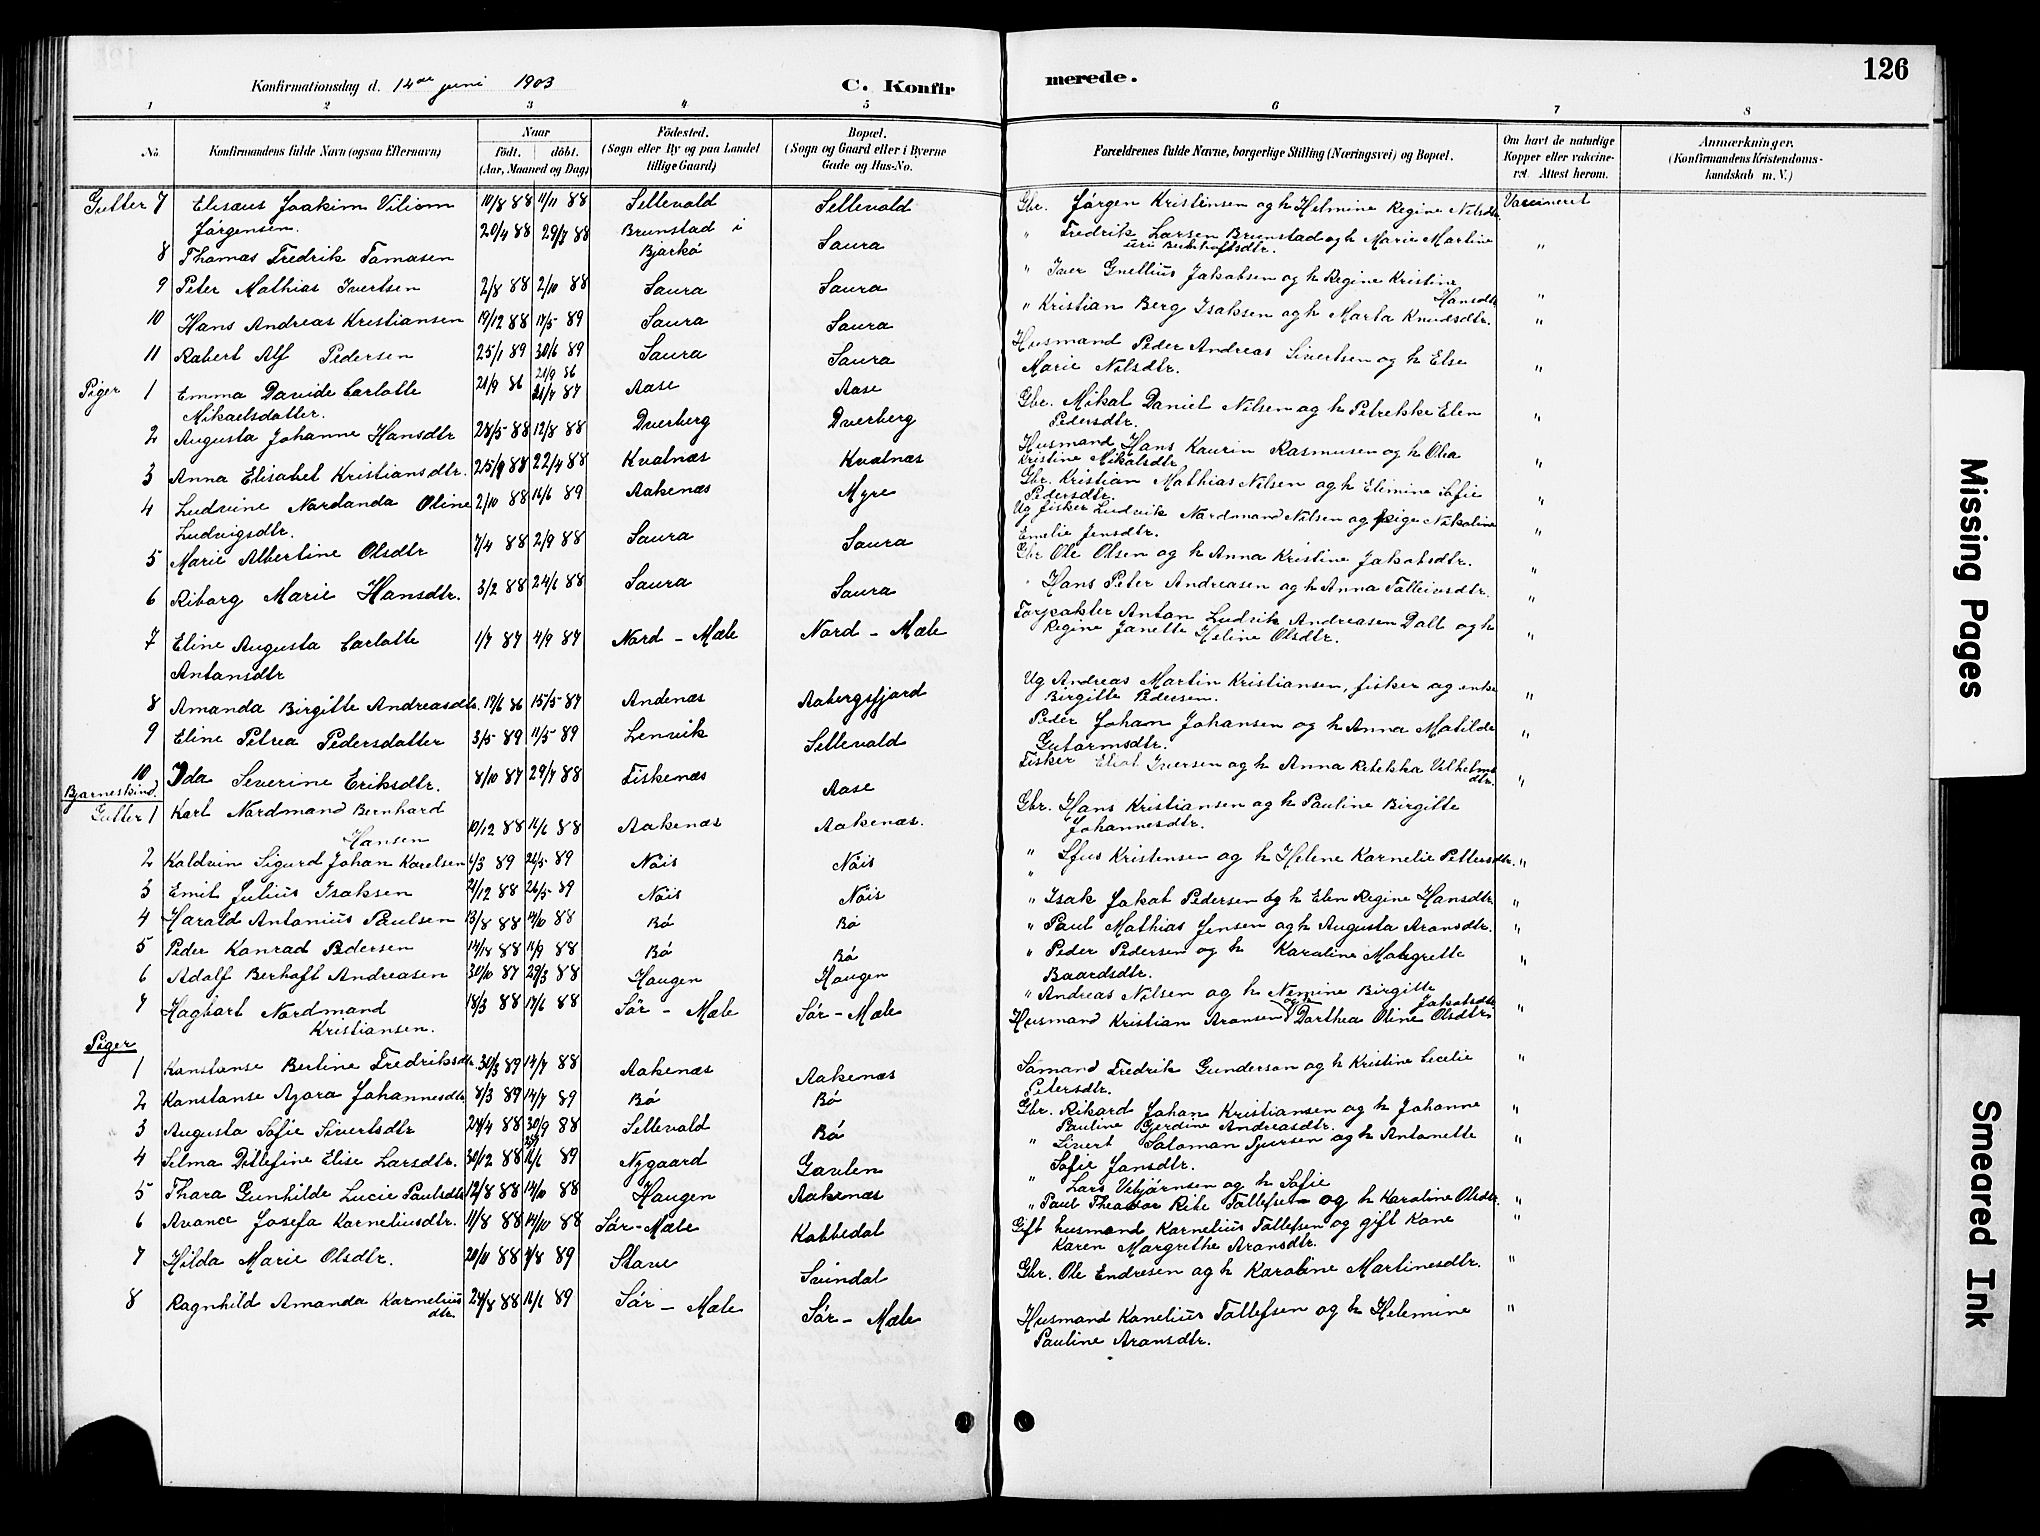 126
Konfirmationsdag d. 14de juni 1903
C. Konfir merede.
1 2 3 4 5 6 7 8
No.
Konfirmandens fulde Navn (ogsaa Efternavn)
Naar
født. døbt.
(Aar, Maaned og Dag)
Fødested.
(Sogn eller By og paa Landet
tillige Gaard)
Bopæl.
(Sogn og Gaard eller i Byerne
Gade og Hus-No.
Forældrenes fulde Navne, borgerlige Stilling (Næringsvei) og Bopæl.
Om havt de naturlige
Kopper eller vakcine-
ret. Attest herom.
Anmærkninger.
(Konfirmandens Kristendoms-
kundskab m. V.)
Gutter 7 Elisæus Joakim Viliom 10/8 88 11/11 88 Sellevold Sellevold Gbr. Jørgen Kristensen og h Helmine Regine Nilsdtr Vaccineret
Jørgensen.
8 Thomas Fredrik Tomasen 20/4 88 29/7 88 Brunstad i Bjarkö Saura " Fredrik Larsen Brunstad og h Marie Martine "
9 Peter Mathias Ivertsen 2/8 88 2/10 88 Saura Saura " Iver Gnellius Jakobsen og h Regine Kristine Hansdtr "
10 Hans Andreas Kristiansen 19/12 88 17/5 89 Saura Saura " Kristian Berg Isaksen og h Marta Knudsdtr. "
11 Robert Alf Pedersen 25/1 89 30/6 89 Saura Saura Husmand Peder Andreas Sivertsen og h Else
Marie Nilsdtr. "
Piger 1 Emma Davide Carlotte 21/9 86 21/7 87 Aase Aase Gbr. Mikal Daniel Nilsen og h Petrekke Elen
Mikaelsdatter. Pedersdtr. "
2 Augusta Johanne Hansdtr 28/5 88 12/8 88 Dverberg Dverberg Husmand Hans Kaurin Rasmusen og h Olea
Kristine Mikalsdtr "
3 Anna Elisabet Kristiansdtr. 25/9 87 22/4 88 Kvalnæs Kvalnæs Gbr. Kristian Mathias Nilsen og h Elimine Sofie
Pedersdtr. "
4 Ludvine Nordanda Oline 2/10 88 16/6 89 Aakenæs Myre Ug fisker Ludvik Nordmand Nilsen og pige Nikoline
Ludvigsdtr. Emelie Jensdtr. "
5 Marie Albertine Olsdtr 7/4 88 2/9 88 Saura Saura Gbr Ole Olsen og h Anna Kristine Jakobsdtr. "
6 Riborg Marie Hansdtr. 3/2 88 24/6 88 Saura Saura " Hans Peter Andreasen og h Anna Tolleivsdtr. "
7 Eline Augusta Carlotte 1/7 87 4/9 87 Nord - Mæle Nord - Mæle Forpakter Anton Ludvik Andreasen Dall og h
Antonsdtr Regine Janette Heline Olsdtr. "
8 Amanda Birgitte Andreasdtr. 17/6 86 15/5 87 Andenæs Aabergsfjord Ug Andreas Martin Kristiansen, fisker og enke
Birgitte Pedersen. "
9 Eline Petrea Pedersdatter 3/5 89 11/5 89 Lenvik Sellevold Peder Johan Johansen og h Anna Matilde
Gutormsdtr. "
10 Ida Severine Eriksdtr. 8/10 87 29/7 88 Fiskenæs Aase Fisker Iversen og h Anna Rebekka Vilhelms
dtr. "
Bjørneskind.
Gutter 1 Karl Nordmand Bernhard 10/12 88 16/6 88 Aakenæs Aakenæs. Gbr. Hans Kristiansen og h Pauline Birgitte
Hansen Johannesdtr.
2 Koldvin Sigurd Johan Karelsen 4/3 89 26/5 89 Nöis Nöis " Kristensen og h Helene Kornelie Pettersdtr. "
3 Emil Julius Isaksen 21/12 88 26/5 89 Nöis Nöis " Isak Jakob Pedersen og h Elen Regine Hansdtr. "
4 Harald Antonius Paulsen 13/8 88 14/10 88 Bö Bö " Paul Mathias Jensen og h Augusta Aronsdtr. "
5 Peder Konrad Pedersen 88 11/9 88 Bö Bö " Peder Pedersen og h Karoline Margrette
Baardsdtr. "
6 Adolf Berhoft Andreasen 30/10 87 29/3 88 Haugen Haugen " Andreas Nilsen og h Nemine Birgitte Jakobsdtr
7 Hagbart Nordmand 18/3 88 17/6 88 Sör - Mæle Sör - Mæle Husmand Kristian Aronsen og h Dorthea Oline Olsdtr. "
Kristiansen.
Piger
1 Konstanse Berline Fredriksdtr. 30/3 89 14/7 88 Aakenæs Aakenæs Sömand Fredrik Gunderson og h Kristine Cecelie
Petersdtr. "
2 Konstanse Agora Johannesdtr 8/3 89 14/7 89 Bö Bö Gbr. Rikard Johan Kristiansen og h Johanne
Pauline Gjerdine Andreasdtr. "
3 Augusta Sofie Sivertsdtr 24/4 88 30/9 88 Sellevold Bö " Sivert Salomon Sjursen og h Antonette
Sofie Jonsdtr. "
4 Selma Ditlefine Elise Larsdtr. 30/12 88 16/6 89 Nygaard Gavlen " Lars Vebjørnsen og h Sofie
5 Thora Gunhilde Lucie Paulsdtr 12/8 88 14/10 88 Haugen Aakenæs " Paul Theodor Rite Tollefsen og h Karoline Olsdtr. "
6 Avance Josefa Korneliusdtr. 11/8 88 14/10 88 Sör - Mæle Kobbedal Gift husmand Kornelius Tollefsen og gift Kone
Karen Margrethe Aronsdtr. "
7 Hilda Marie Olsdtr. 20/11 88 4/8 89 Stave Saindal Gbr. Ole Endresen og h Karoline Martinesdtr. "
8 Ragnhild Amanda Kornelius 24/8 88 16/6 89 Sör - Mæle Sör - Mæle Husmand Konelius Tollefsen og h Helemine
dtr. Pauline Aronsdtr. "
Missing Pages
Smeared Ink